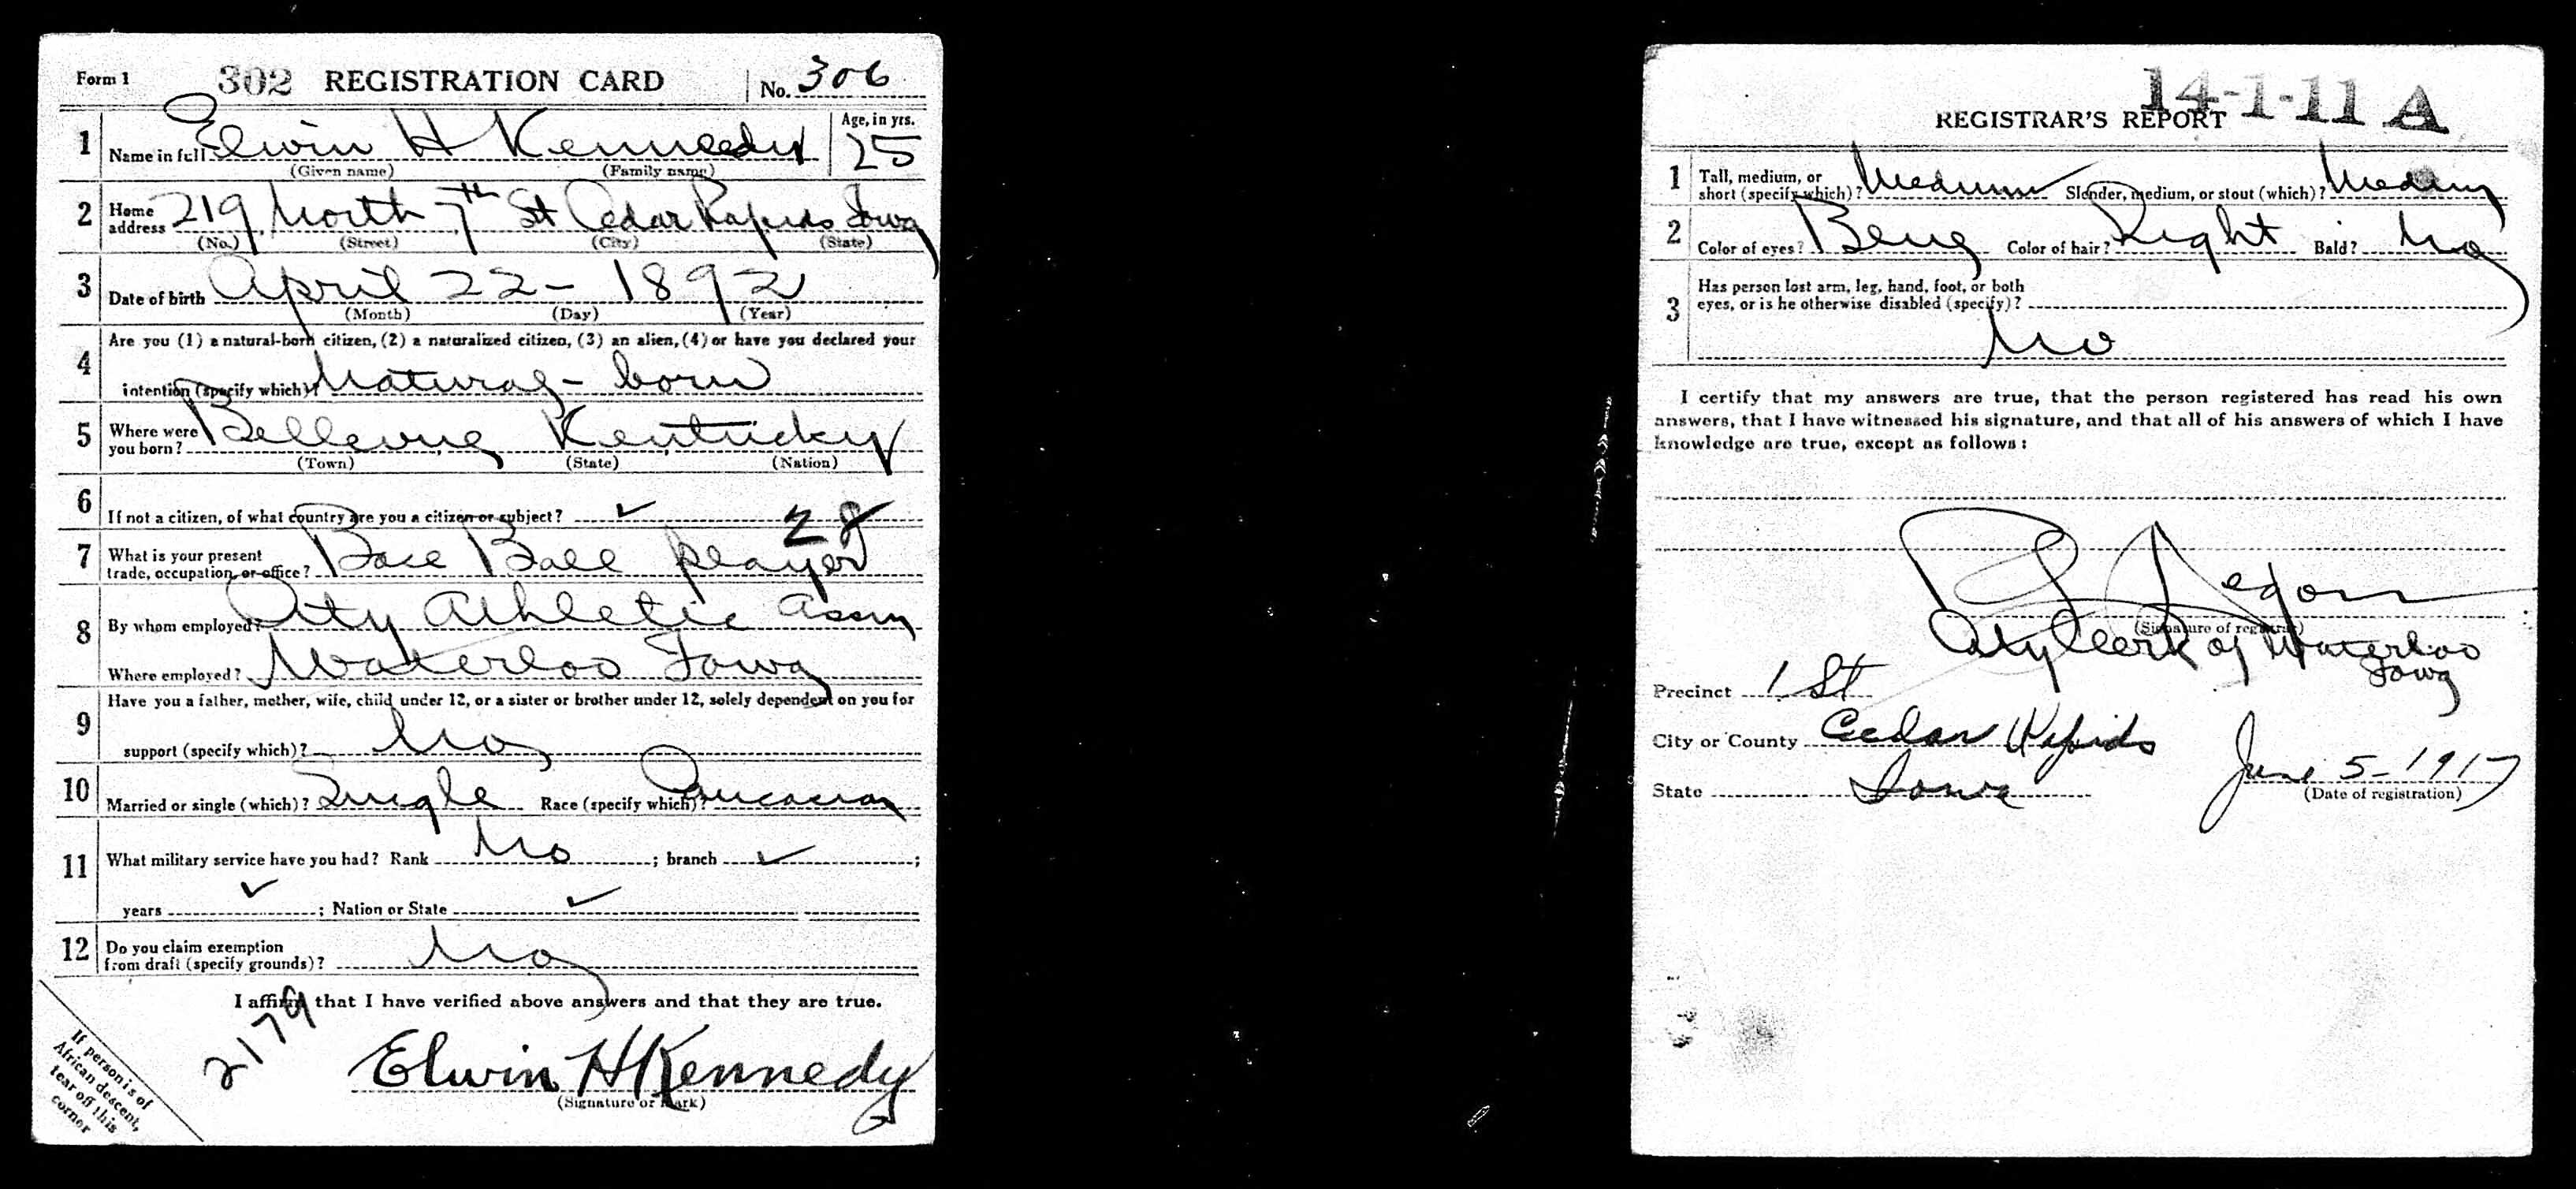 Form 1 302 REGISTRATION CARD No. 306
1 Name in full Elwin H Kennedy Age, in yrs. 25
(Given name) (Family name)
2 Home address 219 North 7th St Cedar Rapids Iowa
(No.) (Street) (City) (State)
3 Date of birth April 22 - 1892
(Month) (Day) (Year)
4 Are you (1) a natural-born citizen, (2) a naturalized citizen, (3) an alien, (4) or have you declared your
intention (specify which)? Natural - born
5 Where were you born? Bellevue Kentucky
(Town) (State) (Nation)
6 If not a citizen, of what country are you a citizen or subject? ✓
28
7 What is your present trade, occupation, or office? Base Ball player
8 By whom employed? City Athletic Assn
Where employed? Waterloo Iowa
9 Have you a father, mother, wife, child under 12, or a sister or brother under 12, solely dependent on you for
support (specify which)? No
10 Married or single (which)? Single Race (specify which)? Caucasian
11 What military service have you had? Rank No ; branch ✓ ;
years ✓ ; Nation or State ✓
12 Do you claim exemption from draft (specify grounds)? No
I affirm that I have verified above answers and that they are true.
2179
Elwin H Kennedy
(Signature or mark)
If person is of
African descent,
tear off this
corner
14-1-11 A
REGISTRAR'S REPORT
1 Tall, medium, or short (specify which)? Medium Slender, medium, or stout (which)? Medium
2 Color of eyes? Blue Color of hair? Light Bald? No
3 Has person lost arm, leg, hand, foot, or both
eyes, or is he otherwise disabled (specify)?
No
I certify that my answers are true, that the person registered has read his own
answers, that I have witnessed his signature, and that all of his answers of which I have
knowledge are true, except as follows:
(Signature of registrar)
City Clerk of Waterloo
Iowa
Precinct 1 St
City or County Cedar Rapids
June 5 - 1917
State Iowa
(Date of registration)